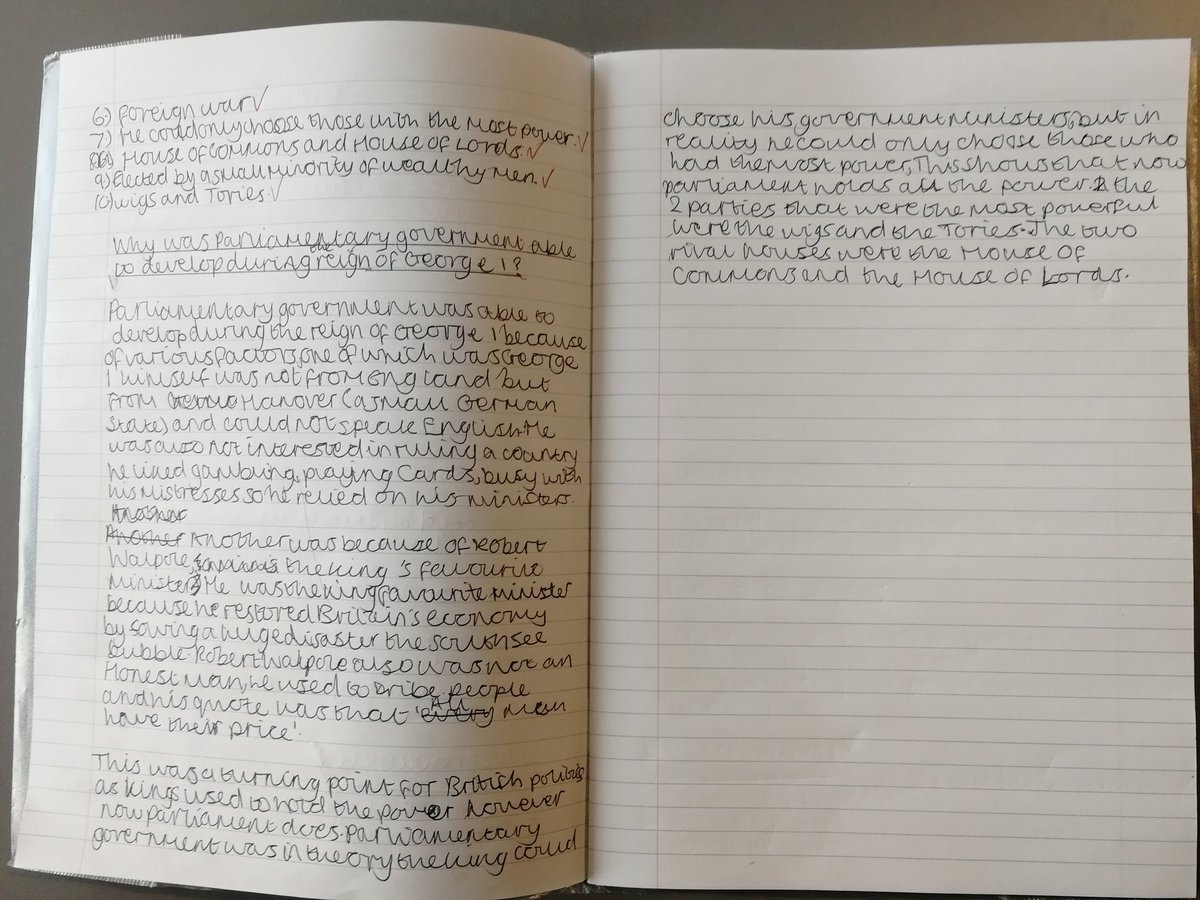 6) foreign war
7) He could only choose those with the most power.
8) House of Commons and House of Lords.
9) Elected by a small minority of wealthy men.
10) wigs and Tories.
Why was Parliamentary government able
to develop during the reign of George 1?
Parliamentary government was able to
develop during the reign of George 1 because
of various factors, one of which was George
1 himself was not from England but
from Hanover (a small German
state) and could not speak English. He
was also not interested in ruling a country
he liked gambling, playing Cards, busy with
his mistresses so he relied on his ministers.
Another
Another Another was because of Robert
Walpole, the king's favourite
minister. He was the king favourite minister
because he restored Britain's economy
by solving a huge disaster the south see
Bubble. Robert Walpole also was not an
Honest man, he used to bribe people
and his quote was that 'every All men
have their price'.
This was a turning point for British politics
as kings used to hold the power however
now parliament does. Parliamentary
government was in theory the king could
choose his government ministers, but in
reality he could only choose those who
had the most power, This shows that now
parliament holds all the power. the
2 parties that were the most powerful
were the wigs and the Tories. The two
rival houses were the House Of
Commons and the House of Lords.